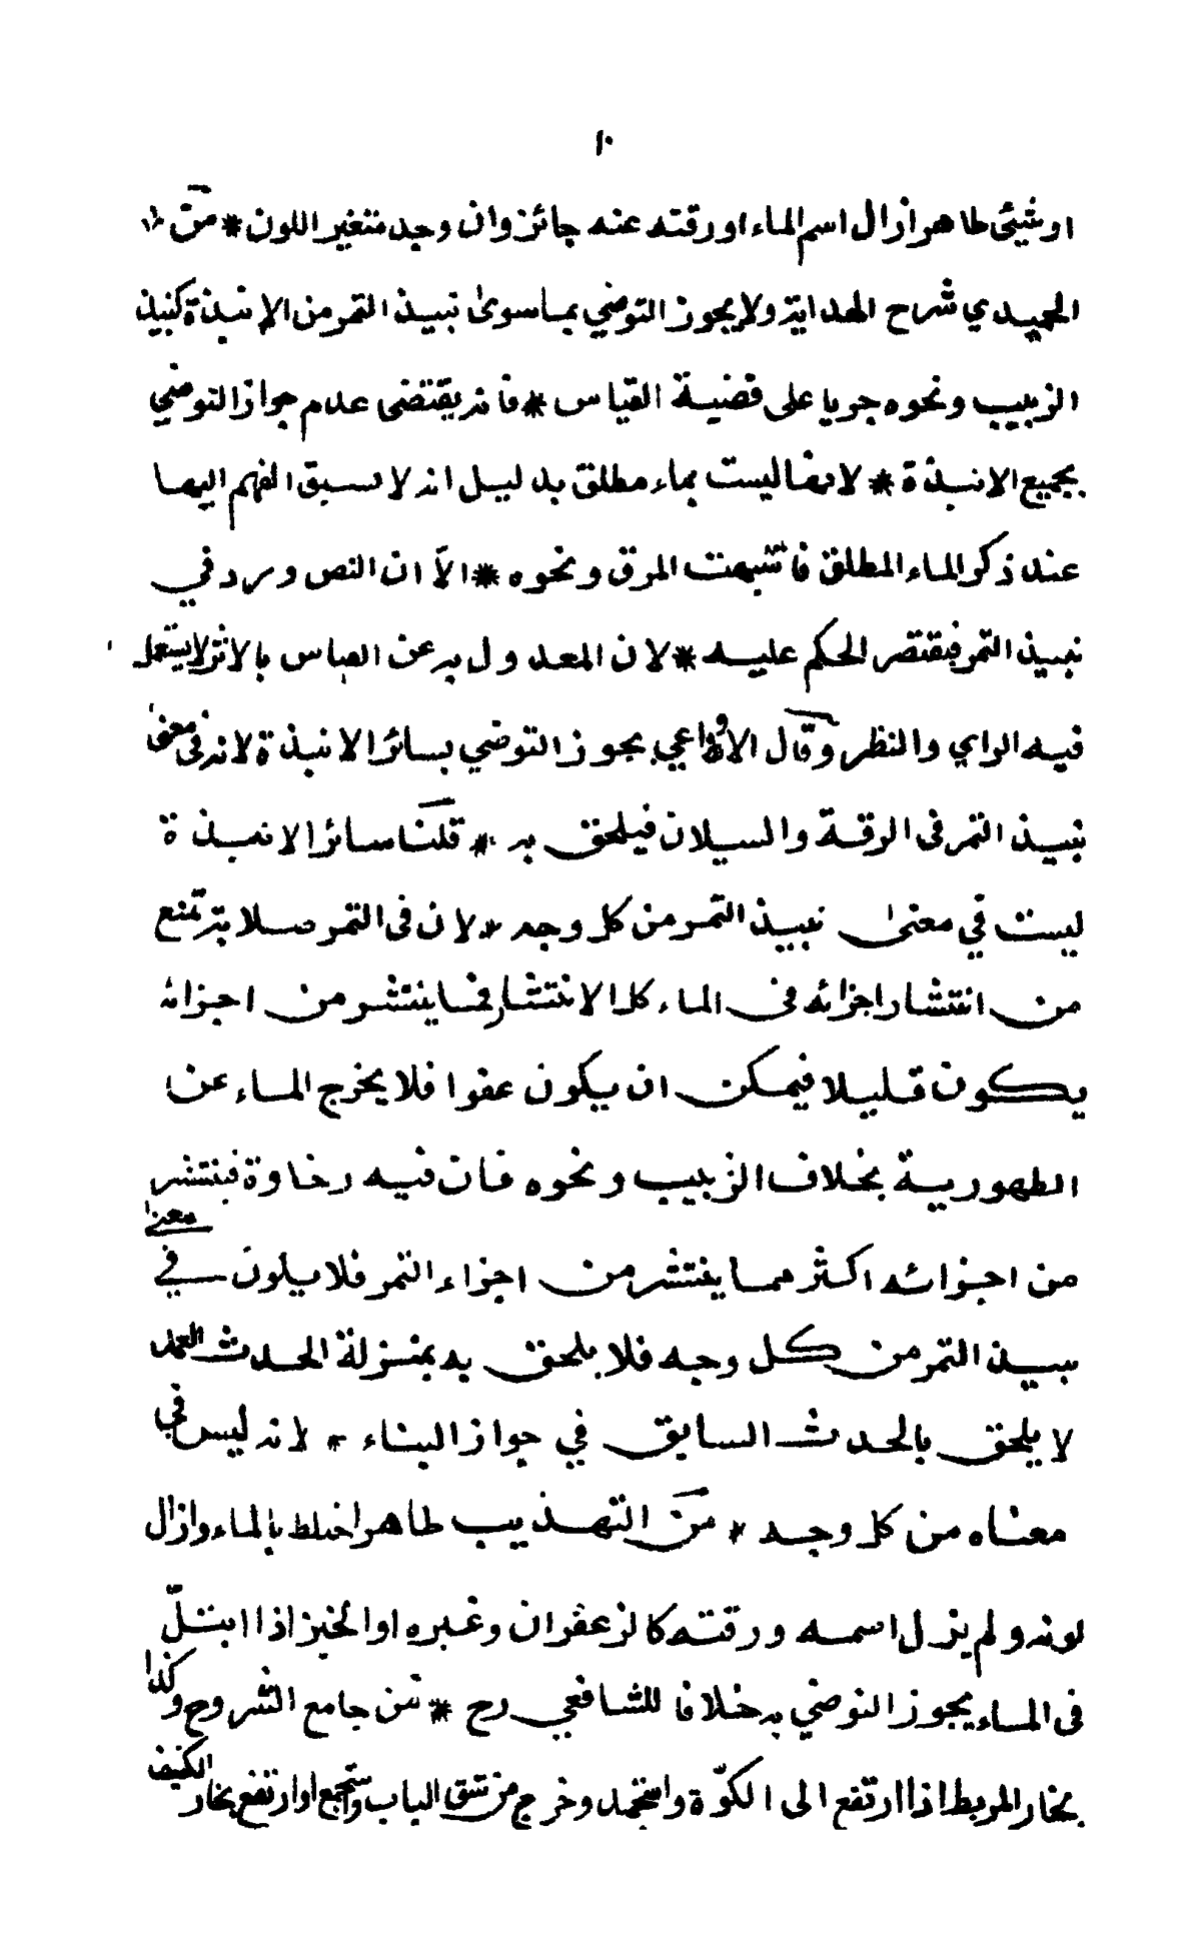 ١٠
او شيئ طاهر ازال اسم الماء او رقته عنه جائز وان وجد متغير اللون * من
الحميدي شرح الهداية ولا يجوز التوضي بما سوى نبيذ التمر من الانبذة كنبيذ
الزبيب ونحوه جريا على قضية القياس * فانه يقتضى عدم جواز التوضي
بجميع الانبذة * لانها ليست بماء مطلق بدليل انه لا يسبق الفهم اليها
عند ذكر الماء المطلق فاشبهت المرق ونحوه * الاّ ان النص ورد في
نبيذ التمر فيقتصر الحكم عليه * لان المعدول به عن القياس بالاثر لا يستعمل
فيه الراي والنظر وقال الاوزاعي يجوز التوضي بسائر الانبذة لانه فى معنى
نبيذ التمر فى الرقة والسيلان فيلحق به * قلنا سائر الانبذة
ليست في معنى نبيذ التمر من كل وجه * لان فى التمر صلابة تمنع
من انتشار اجزائه فى الماء كل الانتشار فما ينتشر من اجزائه
يكون قليلا فيمكن ان يكون عفوا فلا يخرج الماء عن
الطهورية بخلاف الزبيب ونحوه فان فيه رخاوة فينتشر
من اجزائه اكثر مما ينتشر من اجزاء التمر فلا يكون في معنى
نبيذ التمر من كل وجه فلا يلحق به بمنزلة الحدث العمد
لا يلحق بالحدث السابق في جواز البناء * لانه ليس في
معناه من كل وجه * من التهذيب طاهر اختلط بالماء وازال
لونه ولم يزل اسمه ورقته كالزعفران وغيره او الخبز اذا ابتلّ
فى الماء يجوز التوضي به خلافا للشافعي رح * من جامع الشروح وكذا
بخار المربط اذا ارتفع الى الكوّة واستجمد وخرج من شق الباب واستجمع او ارتفع بخار الكنيف